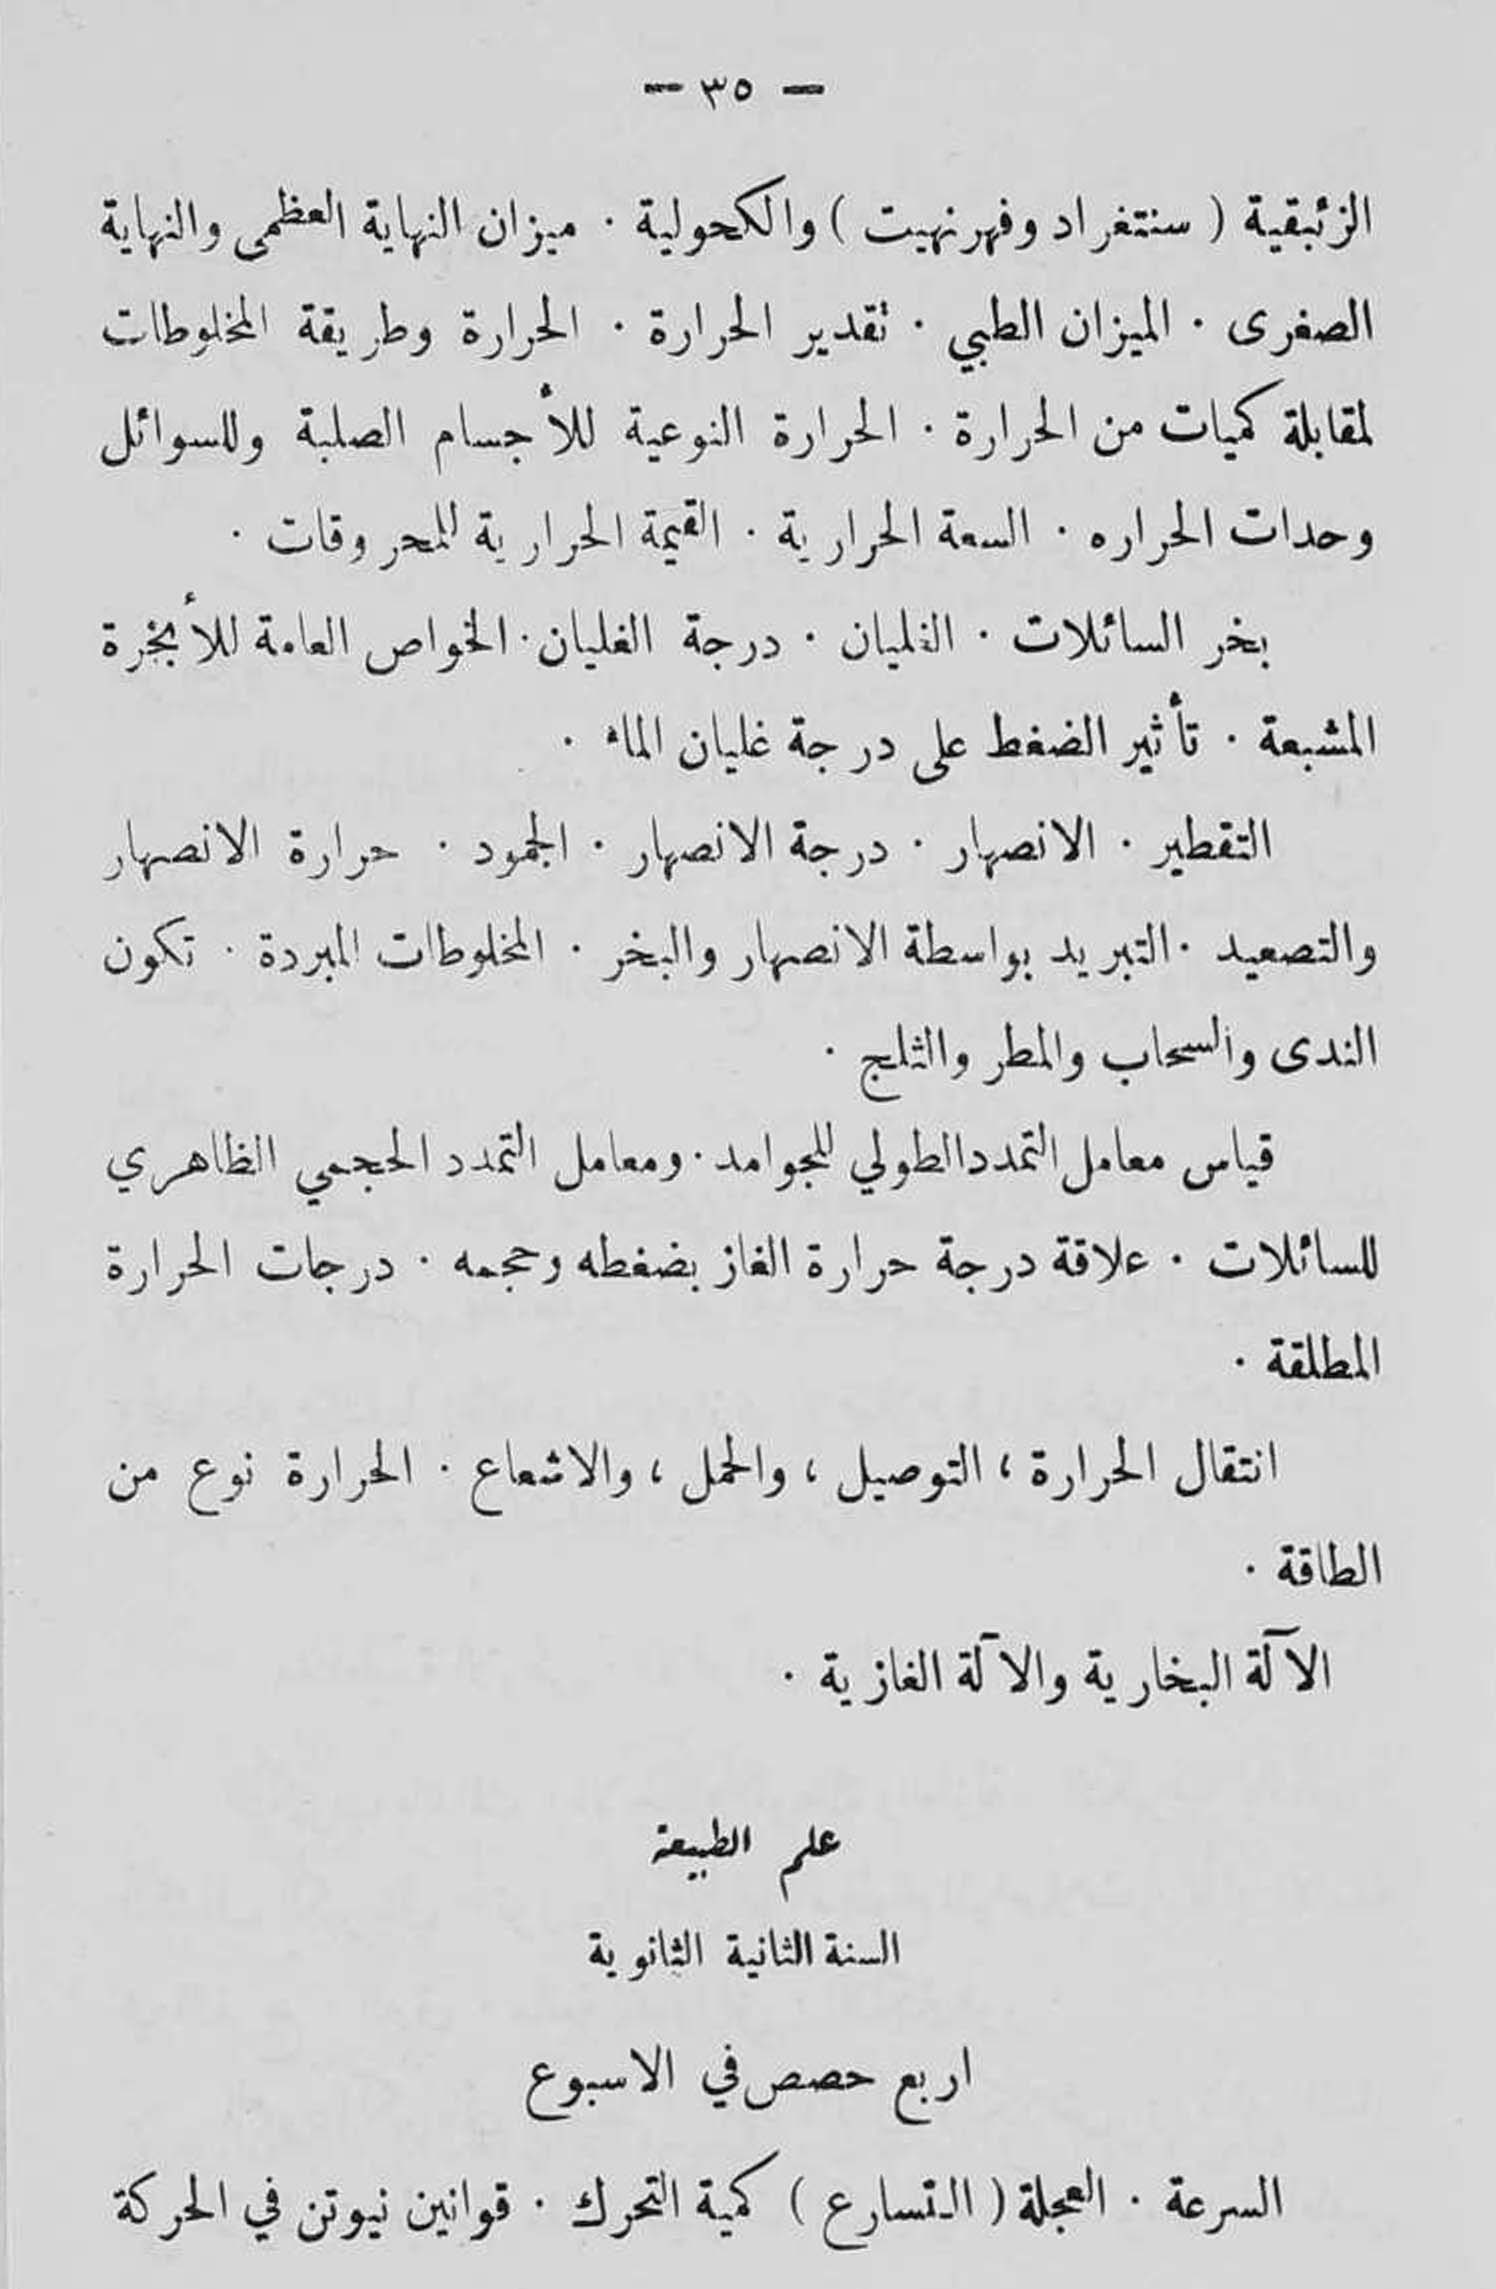 — ٣٥ —
الزئبقية ( سنتغراد وفهرنهيت ) والكحولية . ميزان النهاية العظمى والنهاية
الصغرى . الميزان الطبي . تقدير الحرارة . الحرارة وطريقة المخلوطات
لمقابلة كميات من الحرارة . الحرارة النوعية للأجسام الصلبة وللسوائل
وحدات الحراره . السعة الحرارية . القيمة الحرارية للمحروقات .
بخر السائلات . الغليان . درجة الغليان . الخواص العامة للأبخرة
المشبعة . تأثير الضغط على درجة غليان الماء .
التقطير . الانصهار . درجة الانصهار . الجمود . حرارة الانصهار
والتصعيد . التبريد بواسطة الانصهار والبخر . المخلوطات المبردة . تكون
الندى والسحاب والمطر والثلج .
قياس معامل التمدد الطولي للجوامد . ومعامل التمدد الحجمي الظاهري
للسائلات . علاقة درجة حرارة الغاز بضغطه وحجمه . درجات الحرارة
المطلقة .
انتقال الحرارة ، التوصيل ، والحمل ، والاشعاع . الحرارة نوع من
الطاقة .
الآلة البخارية والآلة الغازية .
علم الطبيعة
السنة الثانية الثانوية
اربع حصص في الاسبوع
السرعة . العجلة ( التسارع ) كمية التحرك . قوانين نيوتن في الحركة